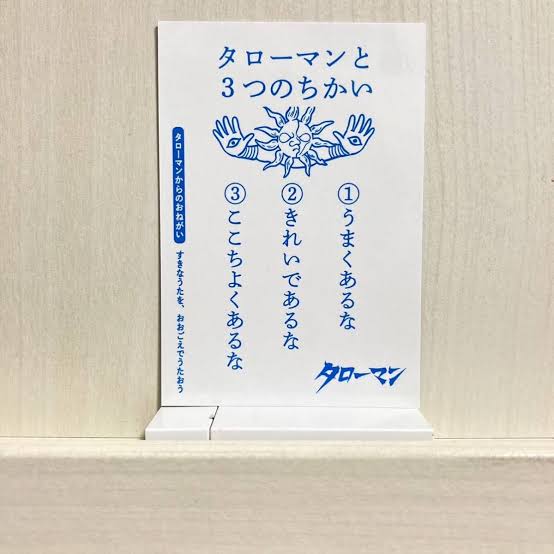 タローマンと
3つのちかい
①うまくあるな
②きれいであるな
③ここちよくあるな
タローマンからのおねがい
すきなうたを、おおごえでうたおう
タローマン